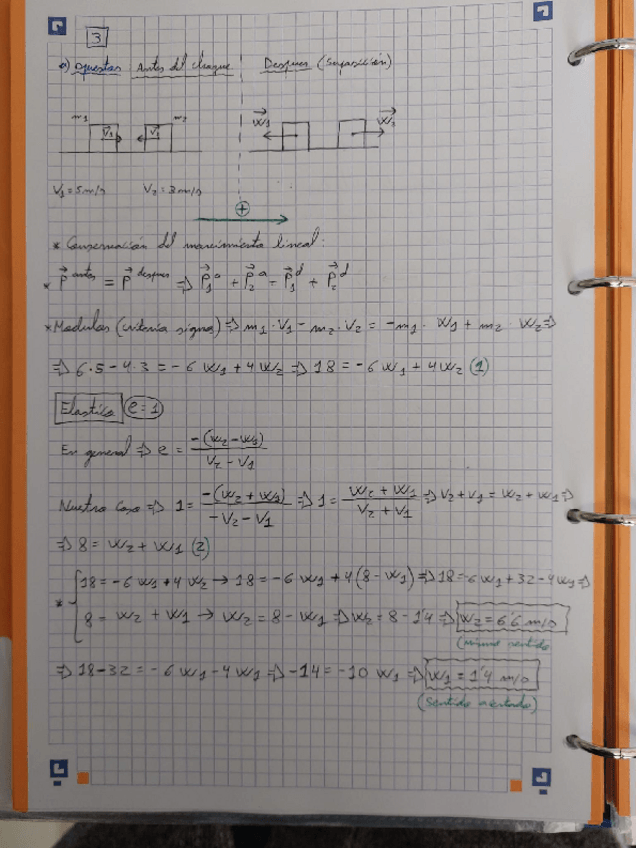 3
a) opuestos Antes del choque Despues (Suposición)
m1 m2 W1 W2
V1 V2
V1 = 5 m/s V2 = 3 m/s
+
* Conservación del movimiento lineal:
* P antes = P despues => P1 a + P2 a = P1 d + P2 d
* Modulos (criterio signo) => m1 · V1 - m2 · V2 = -m1 · W1 + m2 · W2 =>
=> 6·5 - 4·3 = -6 W1 + 4 W2 => 18 = -6 W1 + 4 W2 (1)
Elastico e = 1
En general => e = -(W2 - W1) / V2 - V1
Nuestro Caso => 1 = -(W2 + W1) / -V2 - V1 => 1 = W2 + W1 / V2 + V1 => V2 + V1 = W2 + W1 =>
=> 8 = W2 + W1 (2)
* { 18 = -6 W1 + 4 W2 → 18 = -6 W1 + 4 (8 - W1) => 18 = -6 W1 + 32 - 4 W1 =>
8 = W2 + W1 → W2 = 8 - W1 => W2 = 8 - 1'4 => W2 = 6'6 m/s
sentido
=> 18 - 32 = -6 W1 - 4 W1 => -14 = -10 W1 => W1 = 1'4 m/s
(Sentido acertado)